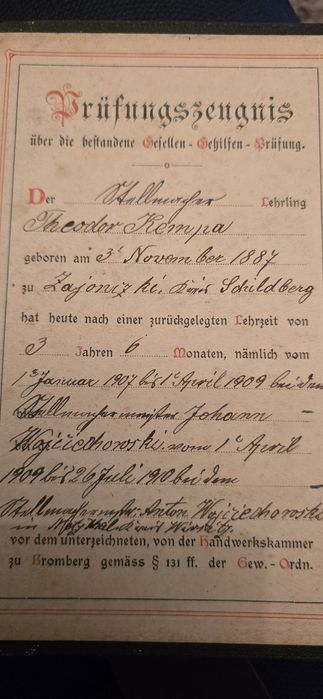 Prüfungszeugnis
über die bestandene Gesellen-Gehilfen-Prüfung.
Der Stellmacher Lehrling
Theodor Kempa
geboren am 3t November 1887
zu Kreis Schildberg
hat heute nach einer zurückgelegten Lehrzeit von
3 Jahren 6 Monaten, nämlich vom
1t Januar 1907 bis 1t April 1909 bei dem
Stellmachermeister Johann
Wojciechowski vom 1t April
1909 bis 26 Juli 190 bei dem
Stellmachermstr. Anton Wojciechowski
in Kreis
vor dem unterzeichneten, von der Handwerkskammer
zu Bromberg gemäss § 131 ff. der Gew.-Ordn.